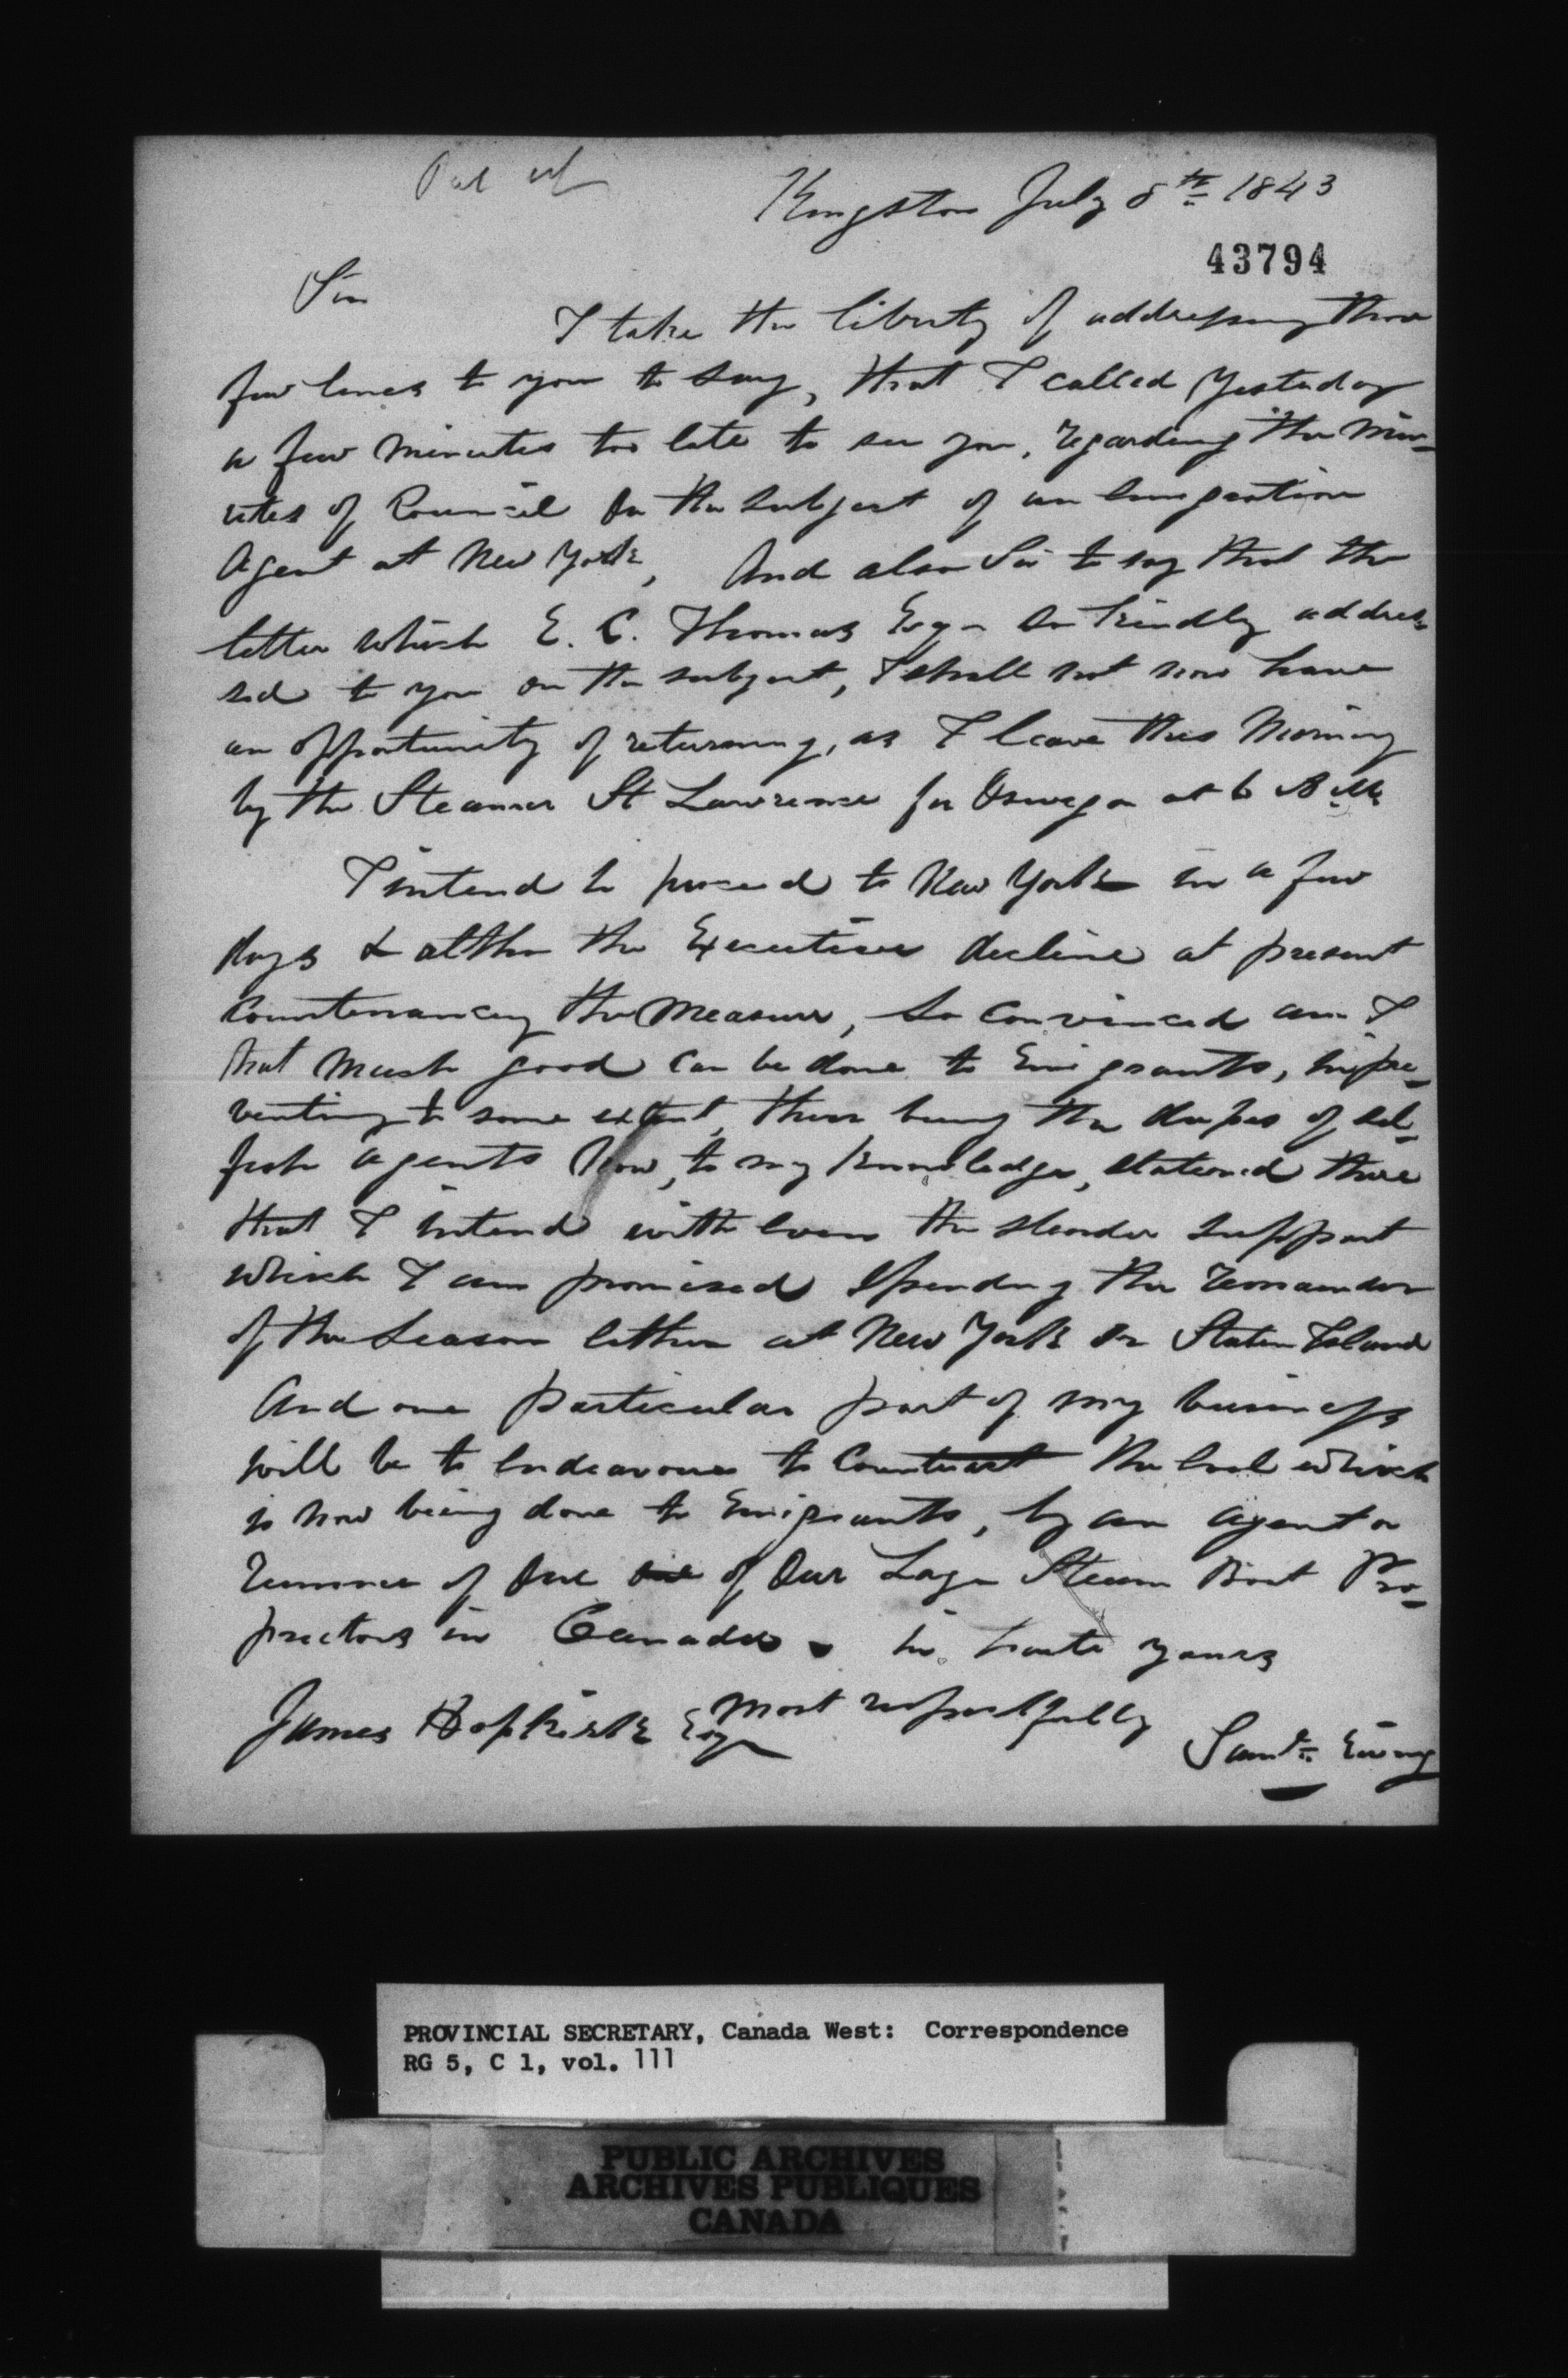 Kingston July 8th 1843
43794
Sir
I take the liberty of addressing these
few lines to you to say, that I called Yesterday
a few minutes too late to see you, regarding the Min-
utes of Council on the subject of an Emigration
Agent at New York, And also Sir to say that the
letter which E. C. Thomas Esqr so kindly addres-
sed to you on the subject, I shall not now have
an opportunity of returning, as I leave this Morning
by the Steamer St Lawrence for Oswego at 6 A.M.
I intend to proceed to New York in a few
days & altho the Executive decline at present
Countenancing the Measure, So Convinced am I
that Much good Can be done to Emigrants, in pre-
venting to some extent, their being the dupes of sel-
fish agents Now, to my Knowledge, stationed there
that I intend with even the slender support
which I am promised Spending the remainder
of the Season either at New York or Staten Island
And one particular part of my business
will be to Endeavour to Counteract the Evil which
is now being done to Emigrants, by an agent or
runner of One of Our Large Steam Boat Pro-
prietors in Canada. in haste yours
most respectfully
James Hopkirk Esqr
Saml. Ewing
PROVINCIAL SECRETARY, Canada West: Correspondence
RG 5, C 1, vol. 111
PUBLIC ARCHIVES
ARCHIVES PUBLIQUES
CANADA